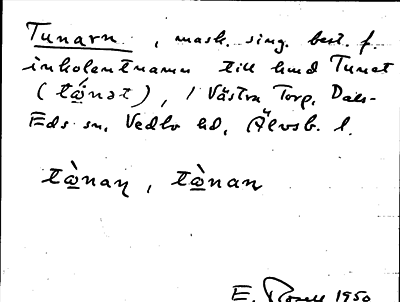 Tunarn , mask. sing. best. f.
inholentnamn till hmd Tunet
(tώ̲nət), i Västra Torp, Dals-
Eds sn, Vedbo hd, Älvsb. l.
tὼ̲naɳ , tὼ̲nan
E. Rosell 1950